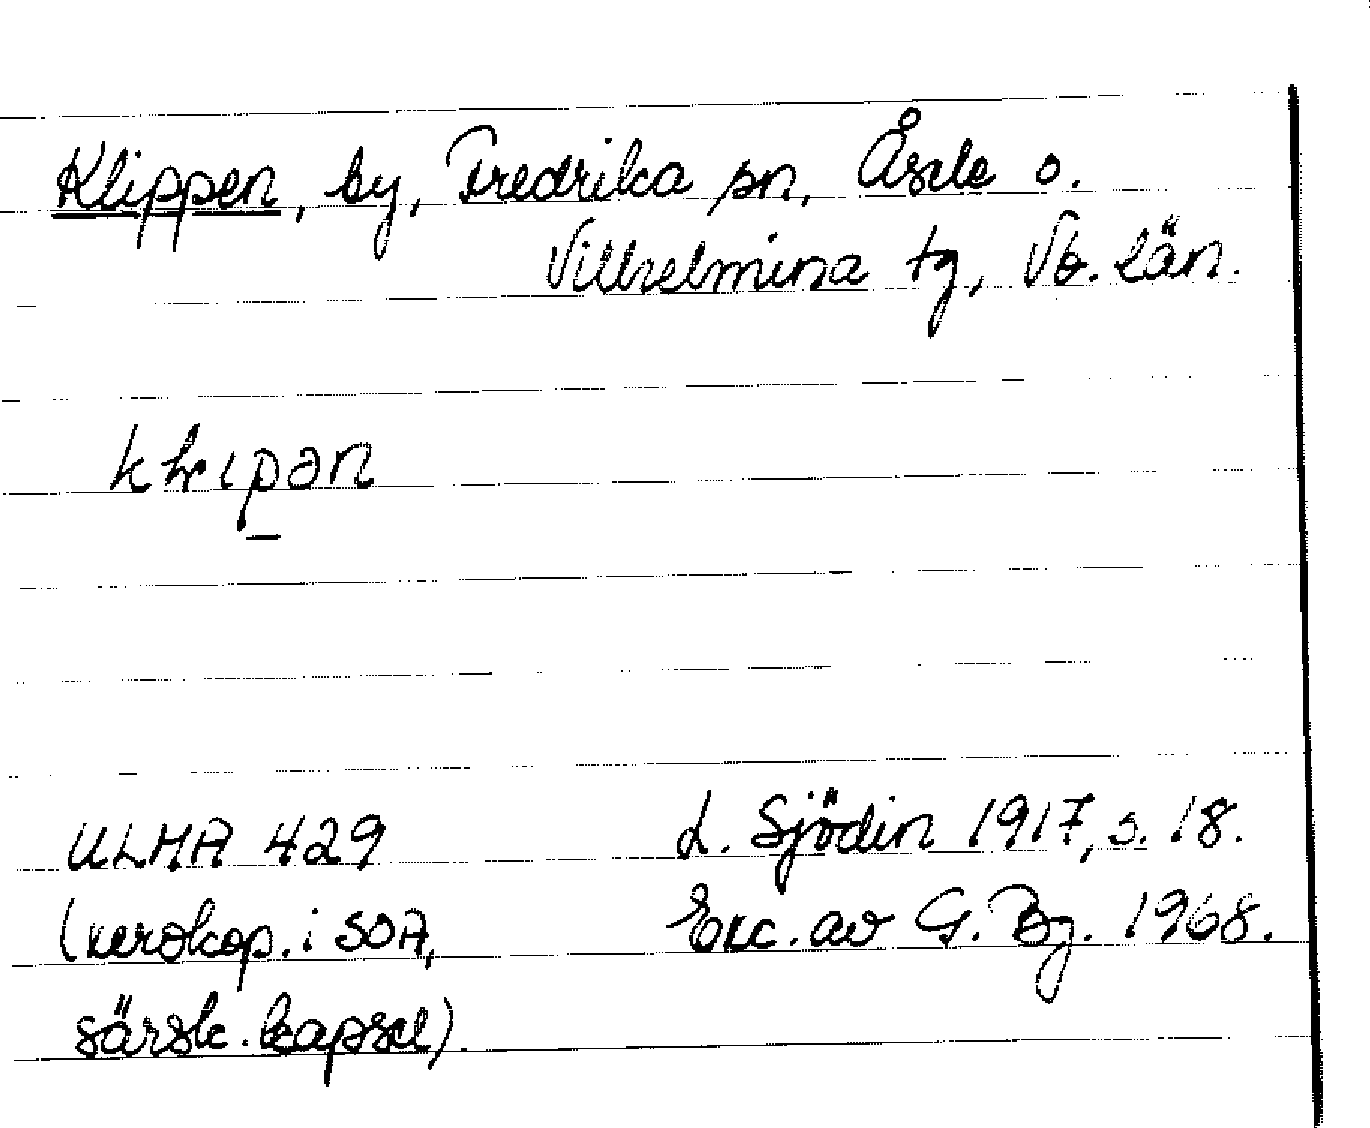 Klippen, by, Fredrika sn, Åsele o.
Vilhelmina tg, Vb. län.
klɩpən
ULMA 429
(xeroxkop. i SOA,
särsk. kapsel).
L. Sjödin 1917, s. 18.
Exc. av G. Bg. 1968.